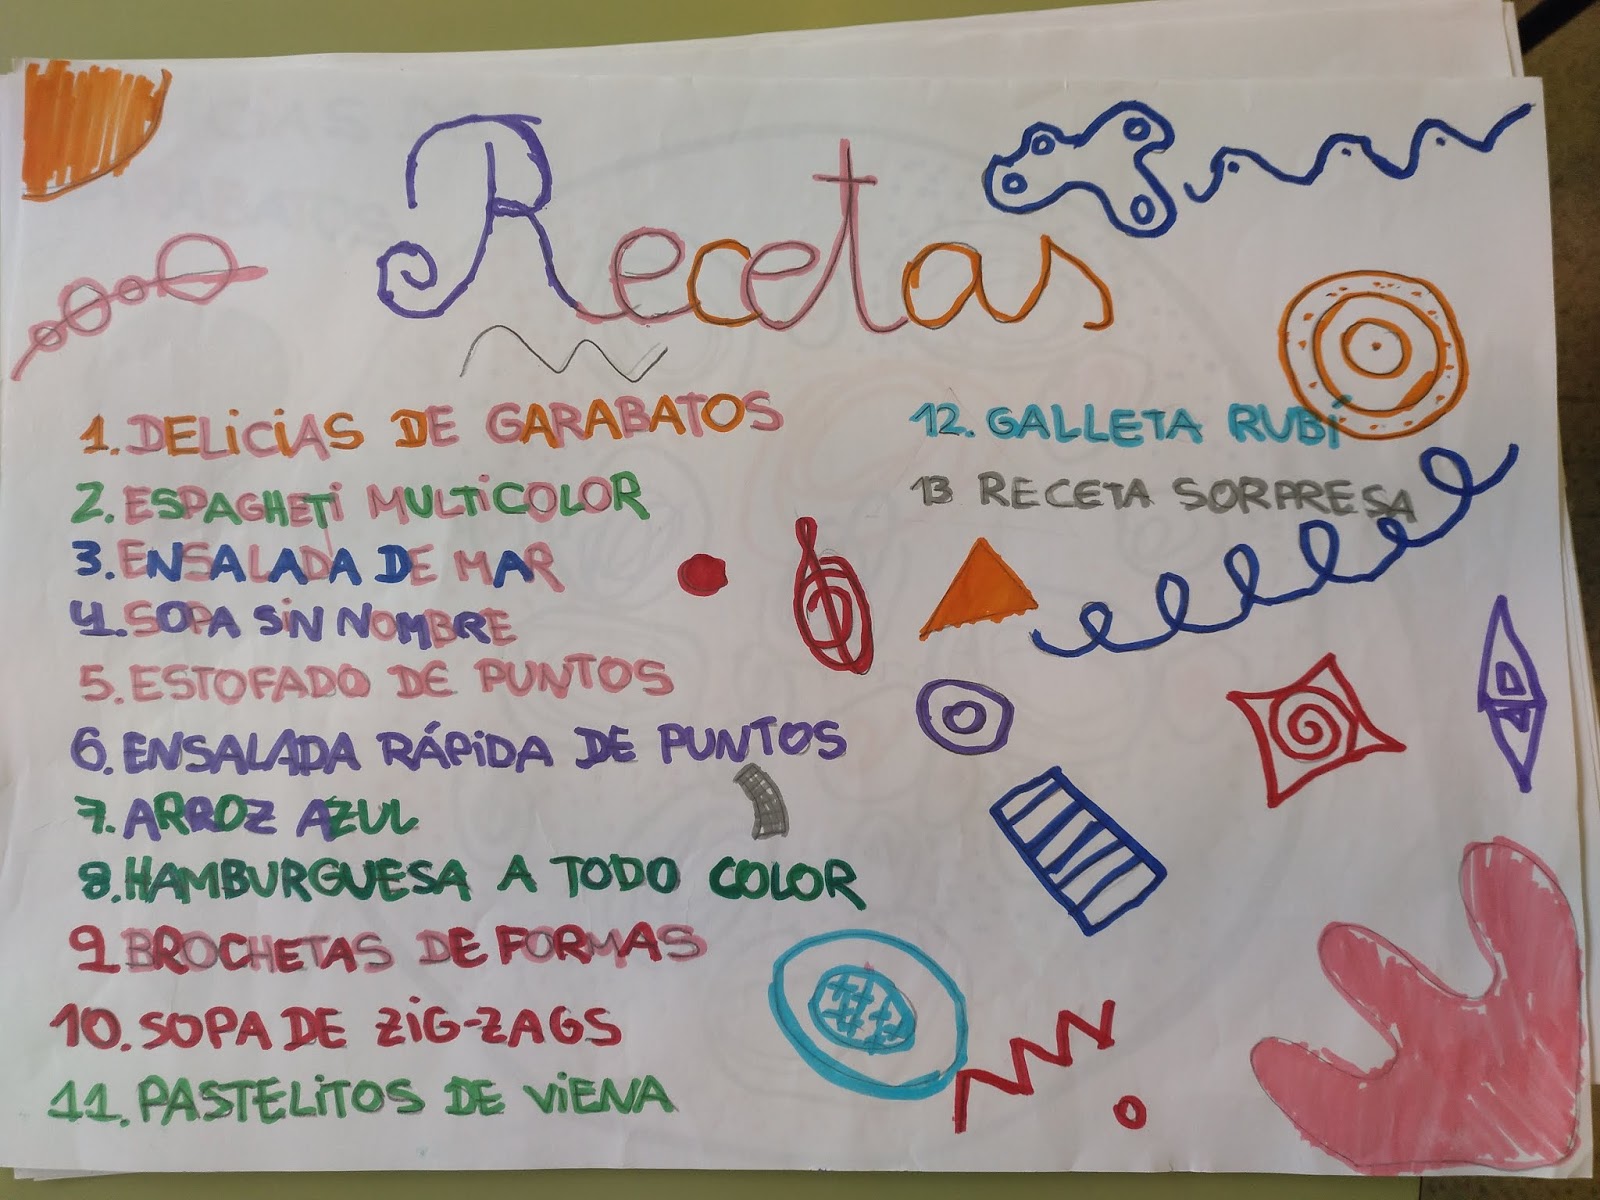 Recetas
1. DELICIAS DE GARABATOS
2. ESPAGHETI MULTICOLOR
3. ENSALADA DE MAR
4. SOPA SIN NOMBRE
5. ESTOFADO DE PUNTOS
6. ENSALADA RÁPIDA DE PUNTOS
7. ARROZ AZUL
8. HAMBURGUESA A TODO COLOR
9 BROCHETAS DE FORMAS
10. SOPA DE ZIG-ZAGS
11. PASTELITOS DE VIENA
12. GALLETA RUBÍ
13 RECETA SORPRESA